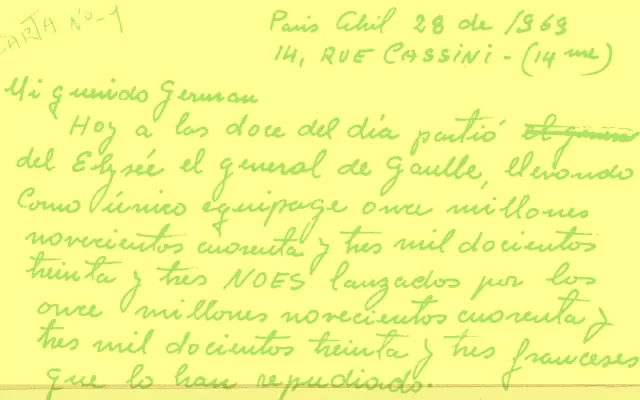 CARTA Nº-1
Paris Abril 28 de 1969
14, RUE CASSINI - (14 me)
Mi querido German
Hoy a las doce del día partió
del Elysée el general de Gaulle, llevando
como único equipage once millones
novecientos cuarenta y tres mil docientos
treinta y tres NOES lanzados por los
once millones novecientos cuarenta y
tres mil docientos treinta y tres franceses
que lo han repudiado.